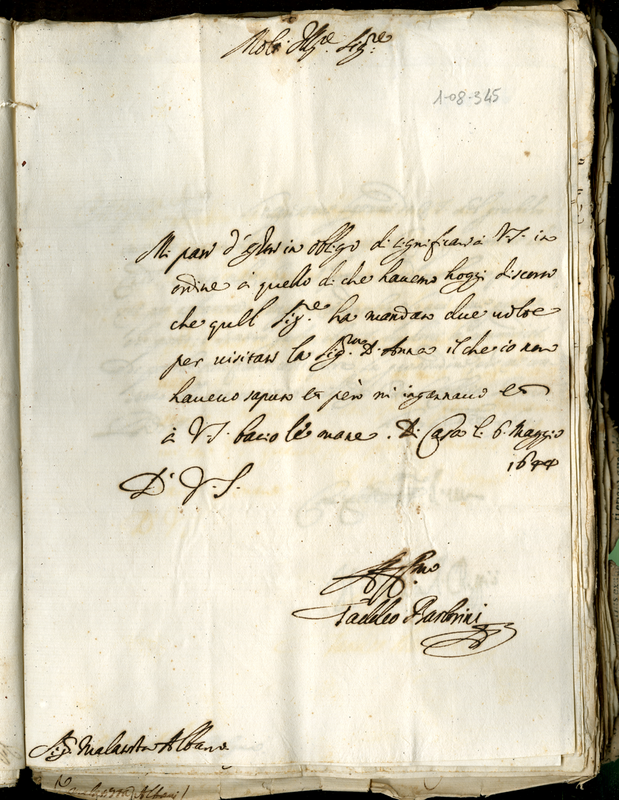 Molto Ill.re Sig.re
1-08-345
Mi pare d'esser in obligo di significare à V.S. in
ordine à quello di che havemo hoggi discorso
che quell Sig.re ha mandato due volte
per visitare la Sig.ra D. Anna il che io non
havevo saputo et però mi ingannavo et
à V.S. bacio le mane. Di Casa li 6 Maggio
1644
D. V.S.
Aff.mo
Taddeo Barberini
Sig. Malatesta Albani